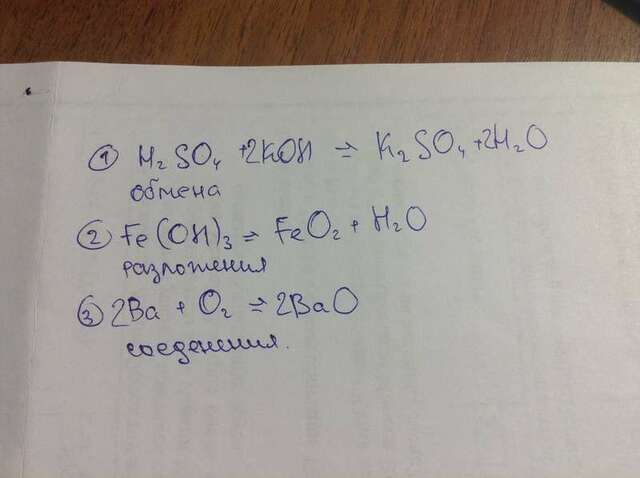 ① H₂SO₄ + 2KOH ⇒ K₂SO₄ + 2H₂O
обмена
② Fe(OH)₃ = FeO₂ + H₂O
разложения
③ 2Ba + O₂ ⇒ 2BaO
соеденения.